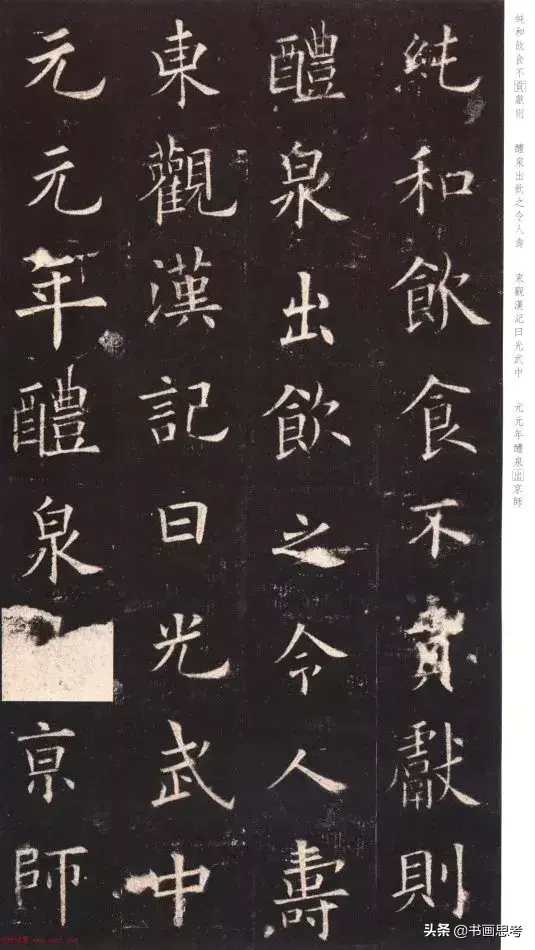 純和飲食不貢獻則 醴泉出飲之令人壽 東觀漢記曰光武中 元元年醴泉出京師
純和飲食不貢獻則
醴泉出飲之令人壽
東觀漢記曰光武中
元元年醴泉亰師
头条 @书画思考